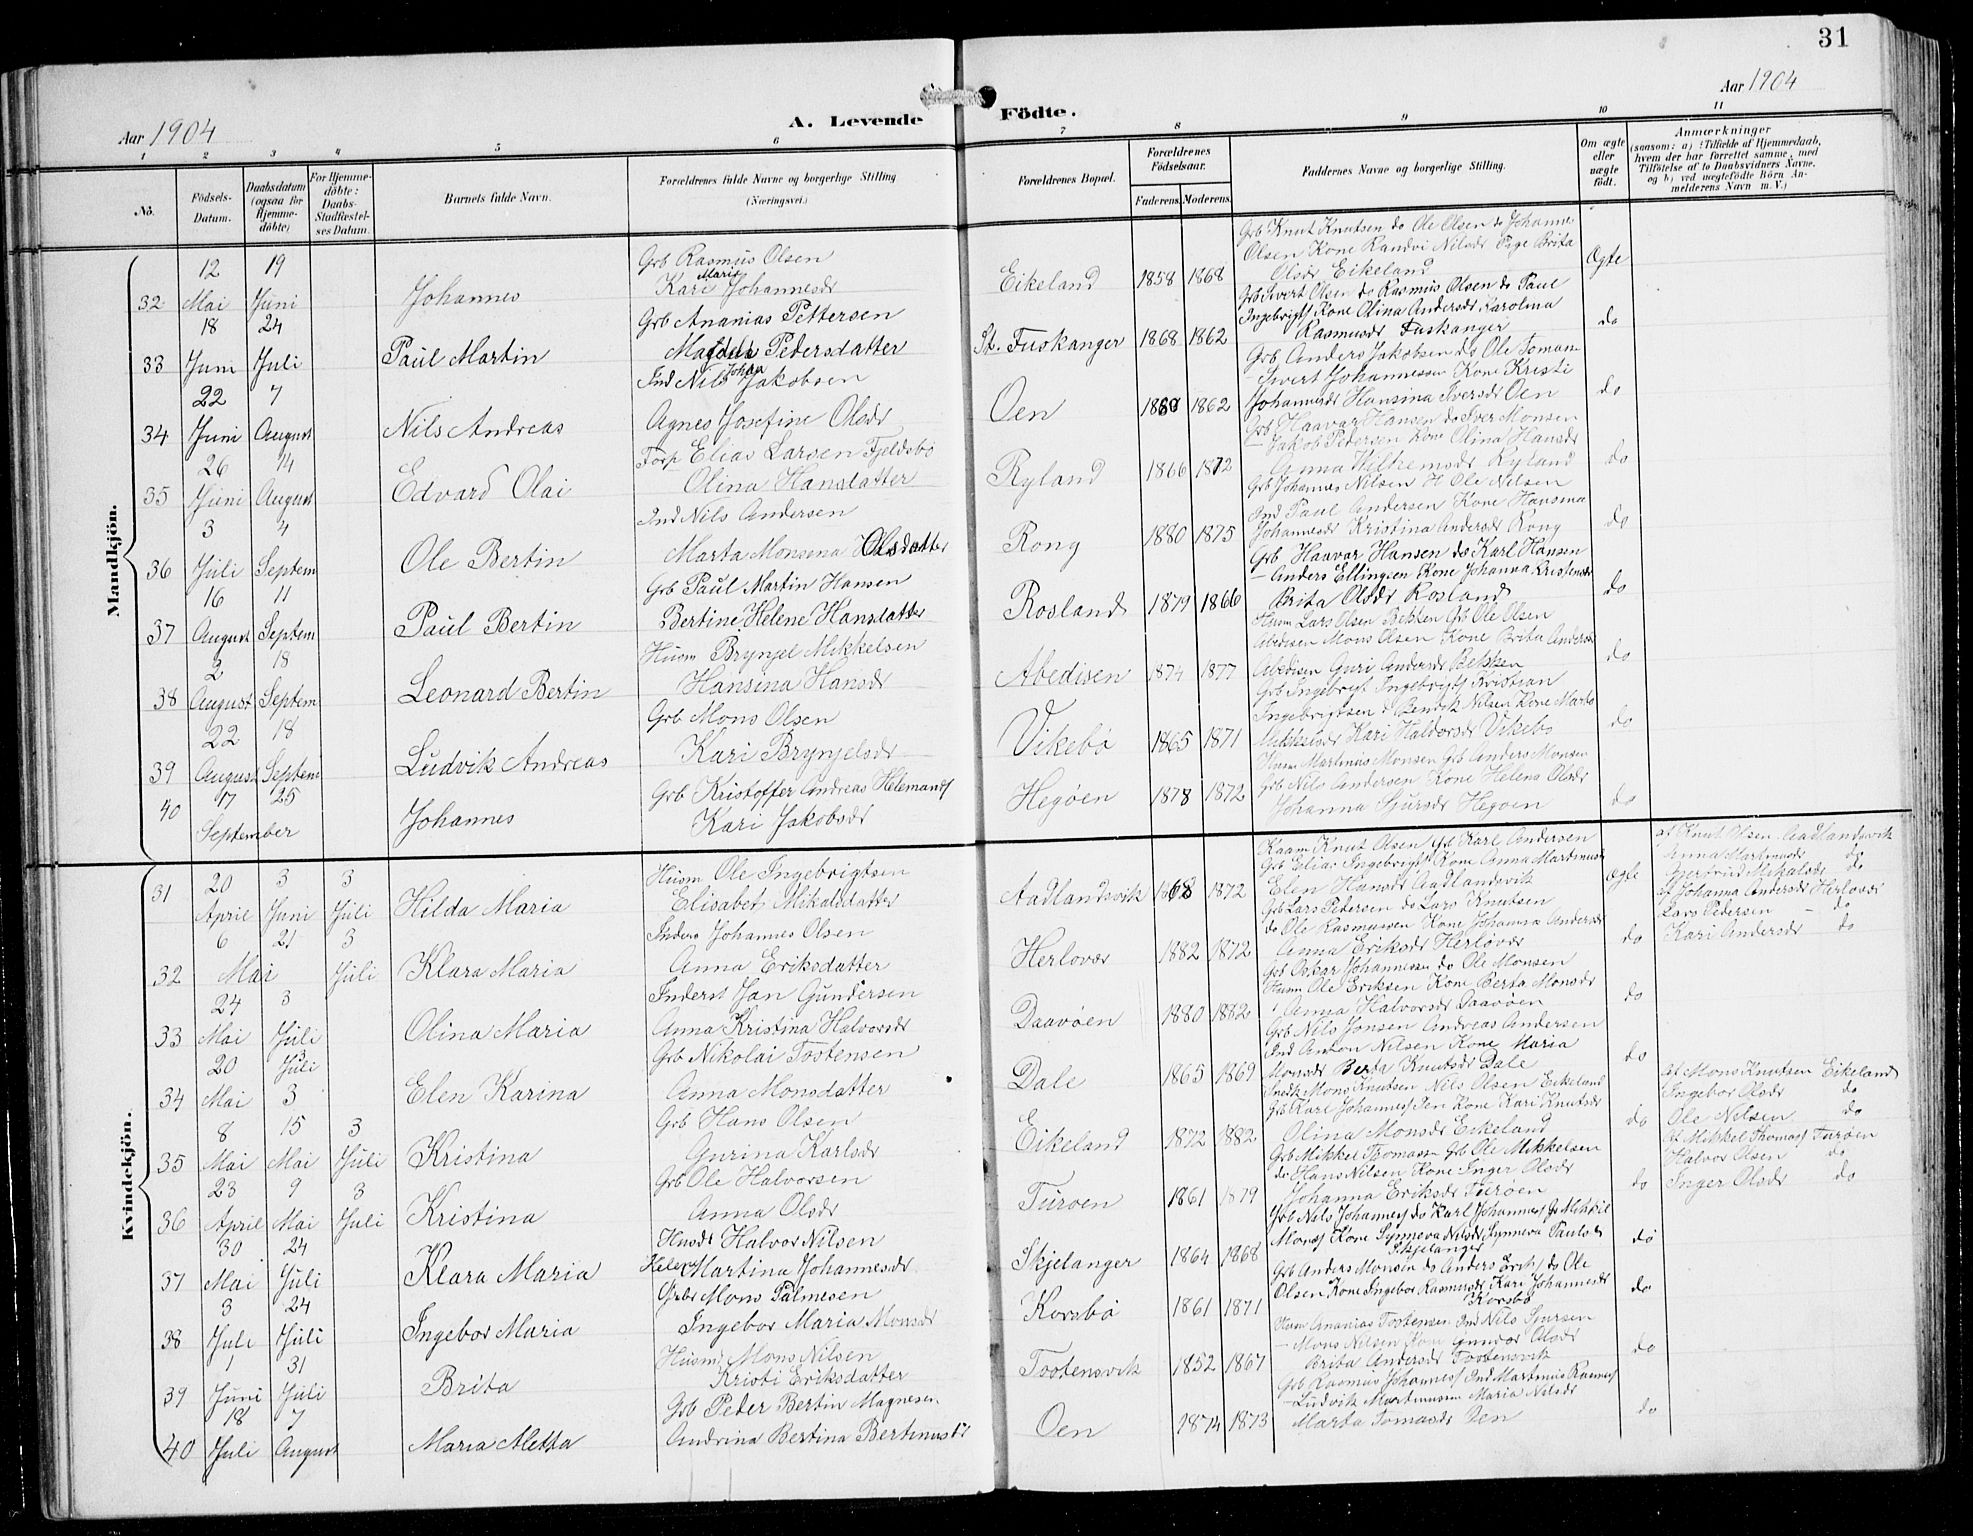 31
Aar 1904
A. Levende Födte.
Aar 1904
1 2 3 4 5 6 7 8 9 10 11
No. Födsels-Datum. Daabsdatum (ogsaa for Hjemme-döbte) For Hjemme-döbte: Daabs-Stadfæstel-ses Datum. Barnets fulde Navn. Forældrenes fulde Navne og borgerlige Stilling (Næringsvei.)
Forældrenes Bopæl. Forældrenes Födselsaar. Faderens. Moderens. Faddernes Navne og borgerlige Stilling. Om ægte eller uægte födt. Anmærkninger
(saasom: a) i Tilfælde af Hjemmedaab,
hvem der har forrettet samme, med
Tilföielse af to Daabsvidners Navne,
og b) ved uægtefödte Börn An-
melderens Navn m. V.)
Mandkjön.
32 12 Mai 19 Juni Johannes Grb Rasmus Olsen
Kari Marie Johannesdr
Eikeland 1858 1868 Grb Knut Knutsen do Ole Olsen do Johannes
Olsen Kone Randvi Nilsdr Pige Brita
Olsdr Eikeland Ægte
33 18 Juni 24 Juli Paul Martin Grb Ananias Pettersen
Magdela Pedersdatter
St. Fuskanger 1868 1862 Grb Sivert Olsen do Rasmus Olsen do Paul
Ingebrigts Kone Olina Andersdr Karolina
Rasmusdr Fuskanger do
34 22 Juni 7 August Nils Andreas Ind Nils Johan Jakobsen
Agnes Josefine Olsdr
Oen 1880 1862 Grb Anders Jakobsen do Ole Toman
Sivert Johannessen Kone Kristi
Johannesdr Hansina Iversdr Oen do
35 26 Juni 14 August Edvard Olai Forp Elias Larsen Fjeldsbö
Olina Hansdatter
Ryland 1866 1872 Grb Haavar Hansen do Iver Monsen
Jakob Pedersen Kone Olina Hansdr
Anna Wilhemsdr Ryland do
36 3 Juli 4 Septem Ole Bertin Ind Nils Andersen
Marta Monsina Olsdatter
Rong 1880 1875 Grb Johannes Nilsen H Ole Nilsen
Ind Paul Andersen Kone Hansina
Johannesdr Kristina Andersdr Rong do
37 16 August 11 Septem Paul Bertin Grb Paul Martin Hansen
Bertine Helene Hansdatter
Rosland 1879 1866 Grb Haavar Hansen do Karl Hansen
Anders Ellingsen Kone Johanna Kristensdr
Brita Olsdr Rosland do
38 2 August 18 Septem Leonard Bertin Husm Brynjel Mikkelsen
Hansina Hansdr
Abedisen 1874 1877 Husm Lars Olsen Bekken Grb Ole Olsen
Abedisen Mons Olsen Kone Brita Andersdr
Abedisen Guri Andersdr Bekken do
39 22 August 18 Septem Ludvik Andreas Grb Mons Olsen
Kari Brynjelsdr
Vikebö 1865 1871 Grb Ingebrigt Ingebrigts Kristian
Ingebrigtsen d Bendik Nilsen Kone Marta
Mikkelsdr Kari Haldorsdr Vikebö do
40 17 September 25 Johannes Grb Kristoffer Andreas Helemands
Kari Jakobsdr
Hegöen 1878 1872 Husm Martinus Monsen Grb Anders Monsen
Grb Nils Andersen Kone Helena Olsdr
Johanna Sjursdr Hegöen do
Kvindekjön.
31 20 April 3 Juni 3 Juli Hilda Maria Husm Ole Ingebrigtsen
Elisabet Mikalsdatter
Aadlandsvik 1868 1872 Kaam Knut Olsen Grb Karl Andersen
Grb Elias Ingebrigts Kone Anna Martinusdr
Elen Hansdr Aadlandsvik ægte at Knut Olsen Aadlandsvik
Anna Martinusdr do
Gjertrud Mikalsdr do
32 6 Mai 21 3 Juli Klara Maria Inders Johannes Olsen
Anna Eriksdatter
Herlövær 1882 1872 Grb Lars Pedersen do Lars Knutsen
do Ole Rasmussen Kone Johanna Andersdr
Anna Eriksdr Herlövær do af Johanna Andersdr Herlövær
Lars Pedersen do
Kari Andersdr do
33 24 Mai 3 Juli Olina Maria Inderst Jan Gundersen
Anna Kristina Halvorsdr
Daavöen 1880 1882 Grb Oskar Johannessen do Ole Monsen
Husm Ole Eriksen Kone Berta Monsdr
Anna Halvorsdr Daavöen do
34 20 Mai 3 Juli 3 Elen Karina Grb Nikolai Tostensen
Anna Monsdatter
Dale 1865 1869 Grb Nils Jonsen Andreas Andersen
Ind Anton Nilsen Kone Maria
Monsdr Berta Knutsdr Dale do
35 8 Mai 15 Mai 3 Juli Kristina Grb Hans Olsen
Gurina Karlsdr
Eikeland 1872 1882 Snedk Mons Knutsen Nils Olsen Eikeland
Grb Karl Johannes Jen Kone Kari Knutsdr
Olina Monsdr Eikeland do at Mons Knutsen Eikeland
Ingebor Olsdr do
Ole Nilsen do
36 23 April 9 Mai 3 Juli Kristina Grb Ole Halvorsen
Anna Olsdr
Turöen 1861 1879 Grb Mikkel Thomasen Grb Ole Mikkelsen
do Hans Nilsen Kone Inger Olsdr
Johanna Eriksdr Turöen do at Mikkel Thomas Turöen
Halvor Olsen do
Inger Olsdr do
37 30 Mai 24 Juli Klara Maria Husdr Halvor Nilsen
Helen Martina Johannesdr
Skjelanger 1864 1868 Grb Nils Johannes do Karl Johannes Gr Mikkil
Mons Kone Synneva Nilsdr Synneva Paulsdr
Skjelanger do
38 3 Juli 24 Juli Ingebor Maria Grbr Mons Palmesen
Ingebor Maria Monsdr
Korsbö 1861 1871 Grb Anders Monsen do Anders Erik do Ole
Olsen Kone Ingebor Rasmusdr Kari Johannesdr
Korsbö do
39 1 Juni 31 Juli Brita Husm Mons Nilsen
Kristi Eriksdatter
Tostensvik 1852 1867 Husm Ananias Tostensen Ind Nils Sjursen
Mons Nilsen Kone Gunvor Olsdr
Brita Andersdr Tostensvik do
40 18 Juli 7 August Maria Metta Grb Peder Bertin Magnesen
Andrina Bertina Bertinusdr
Oen 1874 1873 Grb Rasmus Johannes Ind Martinus Rasmus
Ludvik Martinussen Maria Nilsdr
Marta Tomasdr Oen do